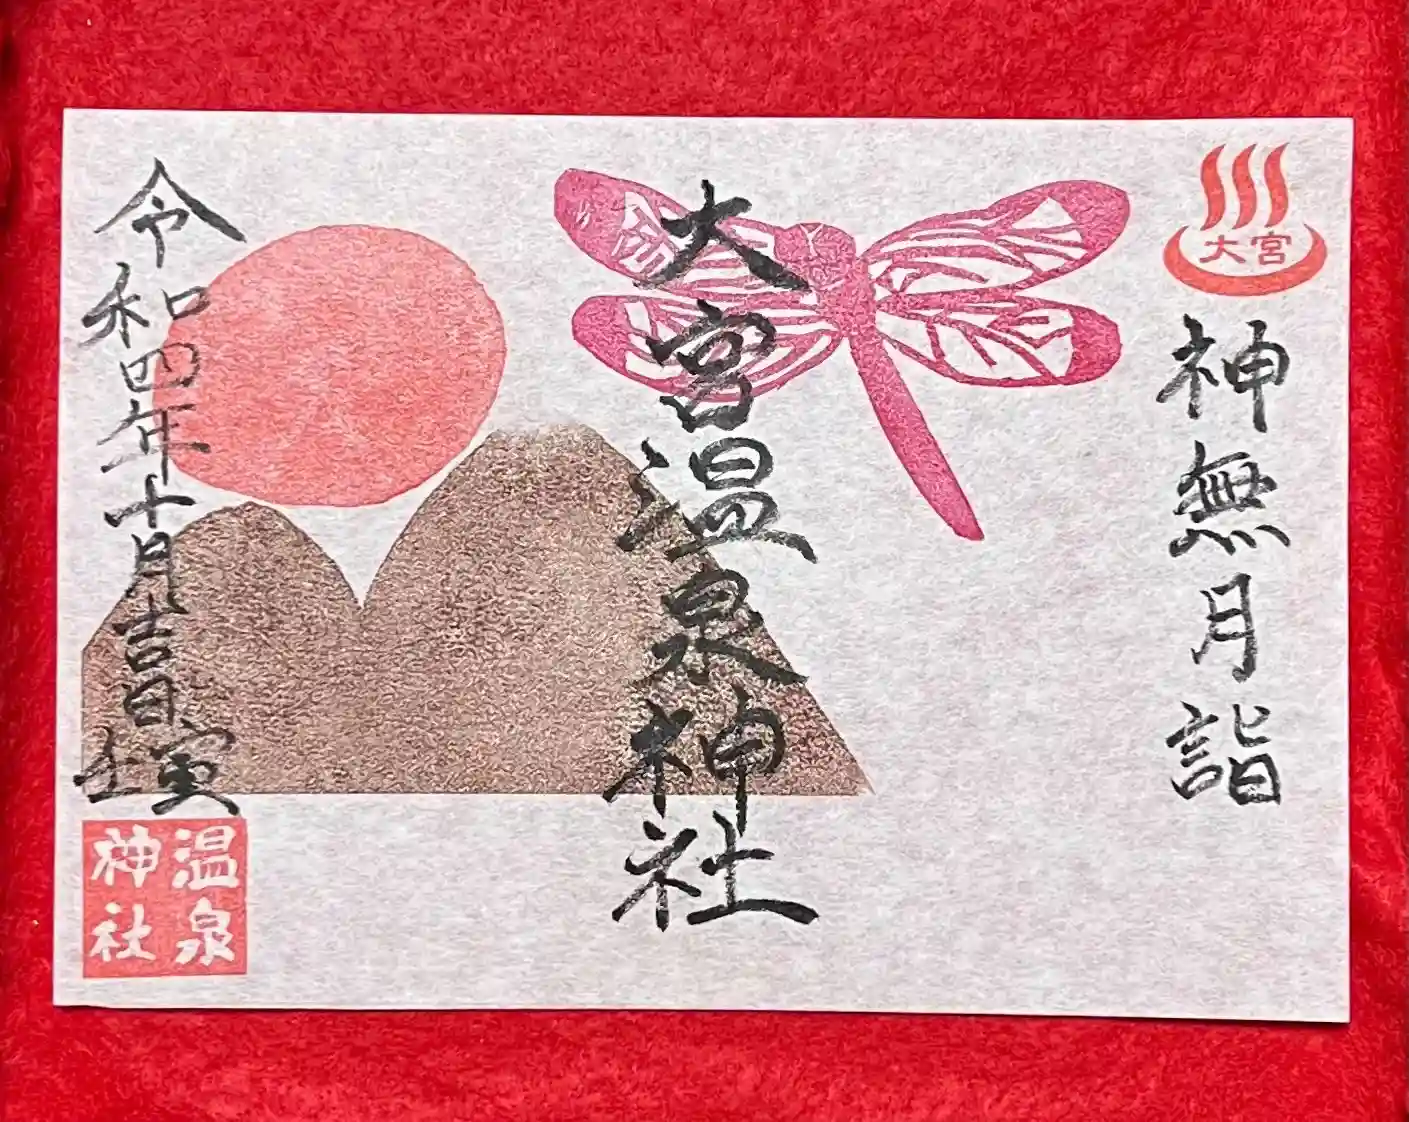 大宮
神無月詣
大宮温泉神社
令和四年十月吉日
壬寅
温泉
神社